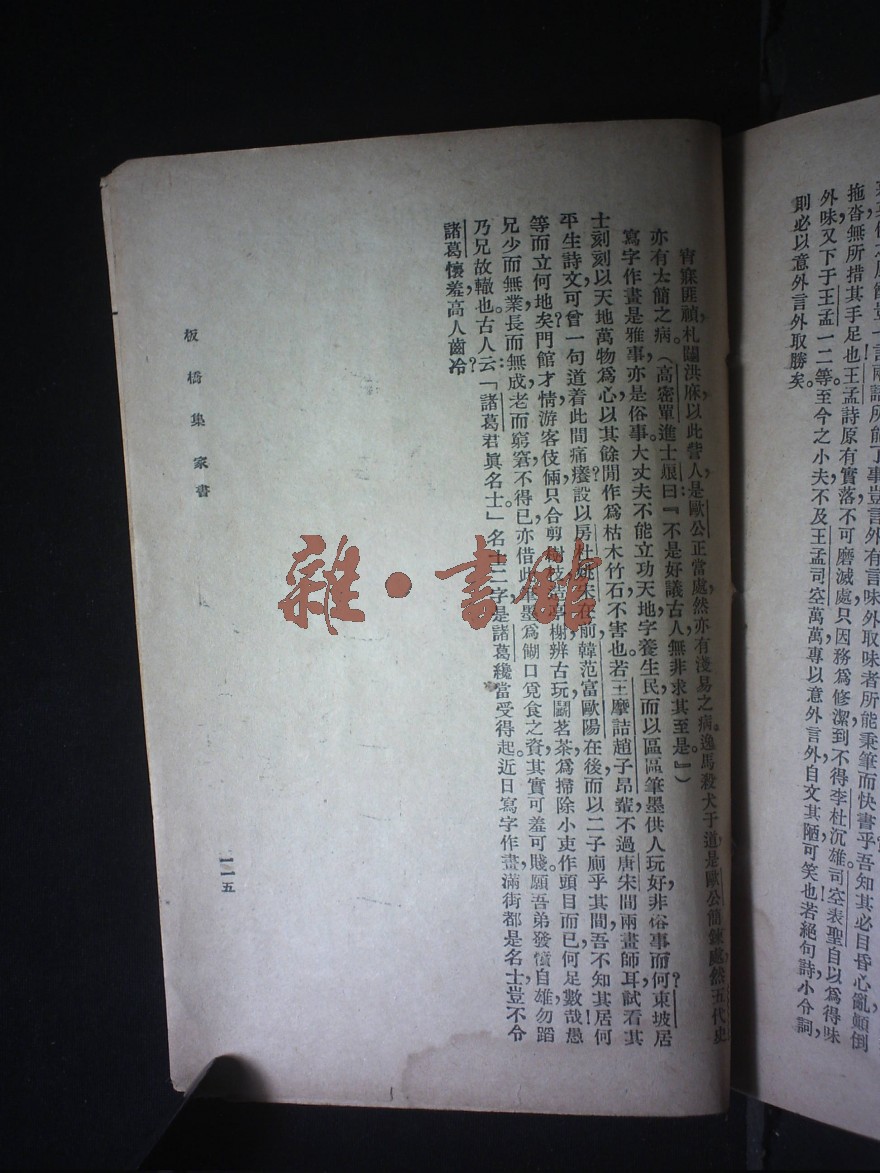 一言兩語所能了事豈言外有言味外取味者所能秉筆而快書乎吾知其必目昏心亂顛倒
拖沓，無所措其手足也！王孟詩原有實落不可磨滅處，只因務爲修潔，到不得李杜沉雄。司空表聖自以爲得味
外味，又下于王孟一二等。至今之小夫，不及王孟司空萬萬，專以意外言外，自文其陋，可笑也！若絕句詩，小令詞，
則必以意外言外取勝矣。
宵寐匪禎，札闥洪庥，以此訾人，是歐公正當處，然亦有淺易之病。逸馬殺犬于道，是歐公簡鍊處，然五代史
亦有太簡之病。（高密單進士烺曰：『不是好議古人，無非求其至是。』）
寫字作畫是雅事，亦是俗事。大丈夫不能立功天地，字養生民，而以區區筆墨供人玩好，非俗事而何？東坡居
士刻刻以天地萬物爲心，以其餘閒作爲枯木竹石，不害也。若王摩詰趙子昂輩，不過唐宋間兩畫師耳！試看其
平生詩文，可曾一句道着此間痛癢？設以房杜姚宋在前，韓范富歐陽在後，而以二子廁乎其間，吾不知其居何
等而立何地矣！門館才情，游客伎倆，只合剪樹枝造亭榭辨古玩鬬茗茶，爲掃除小吏作頭目而已，何足數哉！愚
兄少而無業，長而無成，老而窮窘，不得已亦借此筆墨爲餬口覓食之資，其實可羞可賤。願吾弟發憤自雄，勿蹈
乃兄故轍也。古人云：「諸葛君眞名士」名士二字，是諸葛纔當受得起。近日寫字作畫，滿街都是名士，豈不令
諸葛懷羞，高人齒冷？
板橋集　家書
一一五
雜·書館